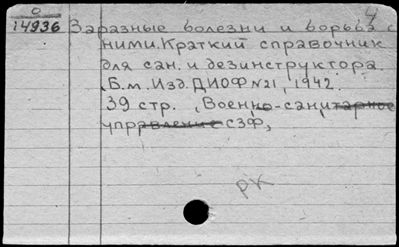 О
14936
4
Заразные болезни и борьба с
ними. Краткий справочник
для сан. и дезинструктора.
Б.м. Изд. ДИОФ №21, 1942.
39 стр. Военно-санитарное
управление СЗФ,
РК